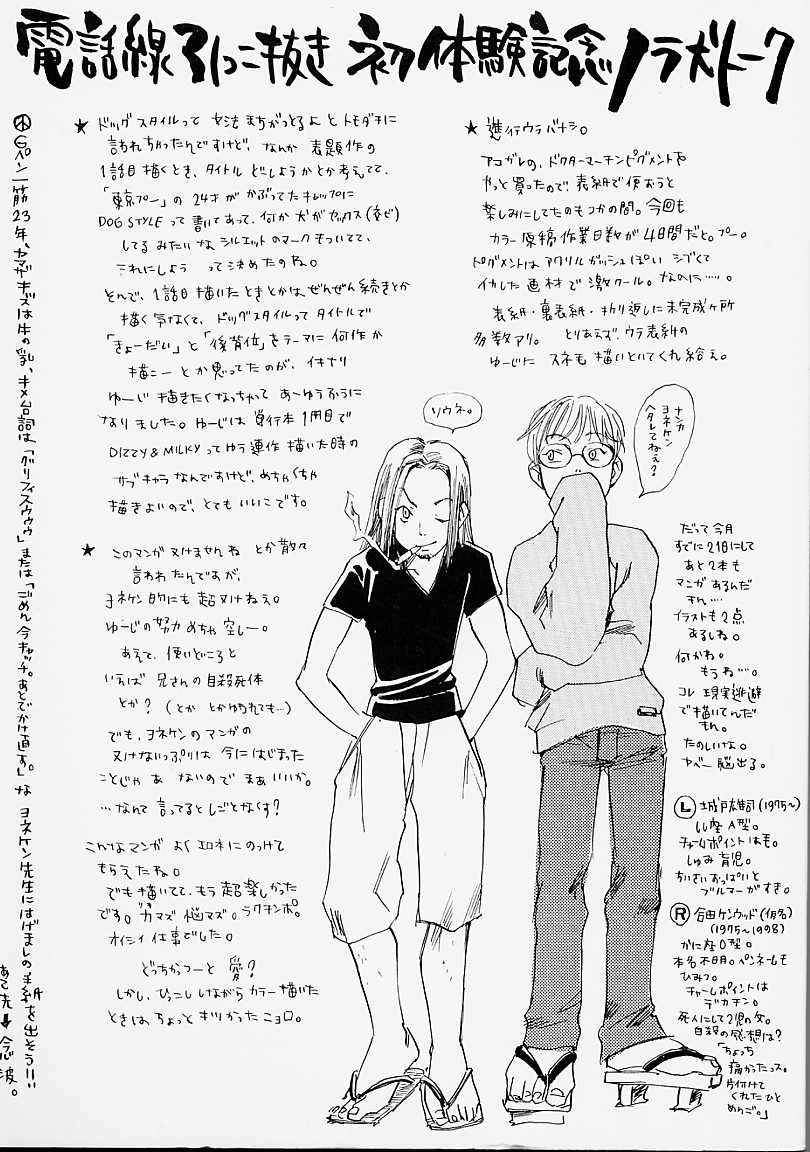 電話線引っこ抜き 初体験記念ノラ犬トーク
★ ドッグスタイルって 文法まちがっとるよ とトモダチに
言われちゃったんですけど、なんか 表題作の
1話目描くとき、タイトル どしようかとか考えてて、
「東京プー」の 24才がかぶってたキャップに
DOG STYLE って書いてあって、何か犬がセックス(交ビ)
してる みたいな シルエットのマークもついてて、
これにしよう って決めたのね。
とんで、1話目描いたときとかは、ぜんぜん続きとか
描く気なくて、ドッグスタイルってタイトルで
「きょーだい」と「後背位」をテーマに何作か
描こー とか思ってたのが、イキナリ
ゆーじ 描きたくなっちゃって あーゆうふうに
なりました。ゆーじは 単行本1冊目で
DIZZY & MILKY ってゆう連作 描いた時の
サブキャラなんですけど、めちゃくちゃ
描きよいので、とても いいこです。
★ このマンガ ヌけませんね とか散々
言われたんですが、
ヨネケン的にも超ヌけねえ。
ゆーじの努力 めちゃ空しー。
あえて、使いどころと
いえば 兄さんの自殺死体
とか? (とか とかゆわれても…)
でも、ヨネケンのマンガの
ヌけないっぷりは 今にはじまった
ことじゃあ ないので まあいいか。
…なんて 言ってるとしごとなくす?
こんなマンガ よく エロネにのっけて
もらえたね。
でも描いてて、もう超楽しかった
です。ガマズ 悩マズ。ラクチンポ。
オイシイ 仕事でした。
どっちかっつーと 愛?
しかし、ひっこし しながら カラー描いた
ときは、ちょっと キツかったニョロ。
★ 進行ウラバナシ。
アコガレの、ドクターマーチンピグメントを
やっと買ったので、表紙で使おうと
楽しみにしてたのもつかの間。今回も
カラー原稿作業日数が4日間だと。プー。
ピグメントは アクリルガッシュぽい シブくて
イカした画材で激クール。なのに……。
表紙・裏表紙・折り返しに未完成ヶ所
多数アリ。 とりあえず、ウラ表紙の
ゆーじに スネ毛 描いといてくれ給え。
ソウネ。
ナンカ
ヨネケン
ヘタレてねえ?
だって今月
すでに21日にして
あと2本も
マンガあるんだ
もん……
イラストも2点
あるしね。
何かね。
もうね……。
コレ 現実逃避
で描いてんだ
もん。
たのしいな。
ヤベー 脳出る。
Ⓛ 城戸雄司(1975〜)
しし座 A型。
チャームポイントは毛。
しゅみ 育児。
ちいさいおっぱいと
ブルマーがすき。
Ⓡ 合田ケンウッド(仮名)
(1975〜1998)
かに座 O型。
本名不明。ペンネームも
ひみつ。
チャームポイントは
デカチン。
死人にして2児の父。
自殺の感想は?
「ちょっち
痛かったっス。
片付けて
くれたひと
めんご。」
Gペン一筋23年、ヤマザキズは牛の乳、キメ台詞は、「グリフィスウゥゥ」または「ごめん今キャッチ。あとでかけ直す。」な ヨネケン先生にはげましの手紙を出そう!!
あて先→今心波。